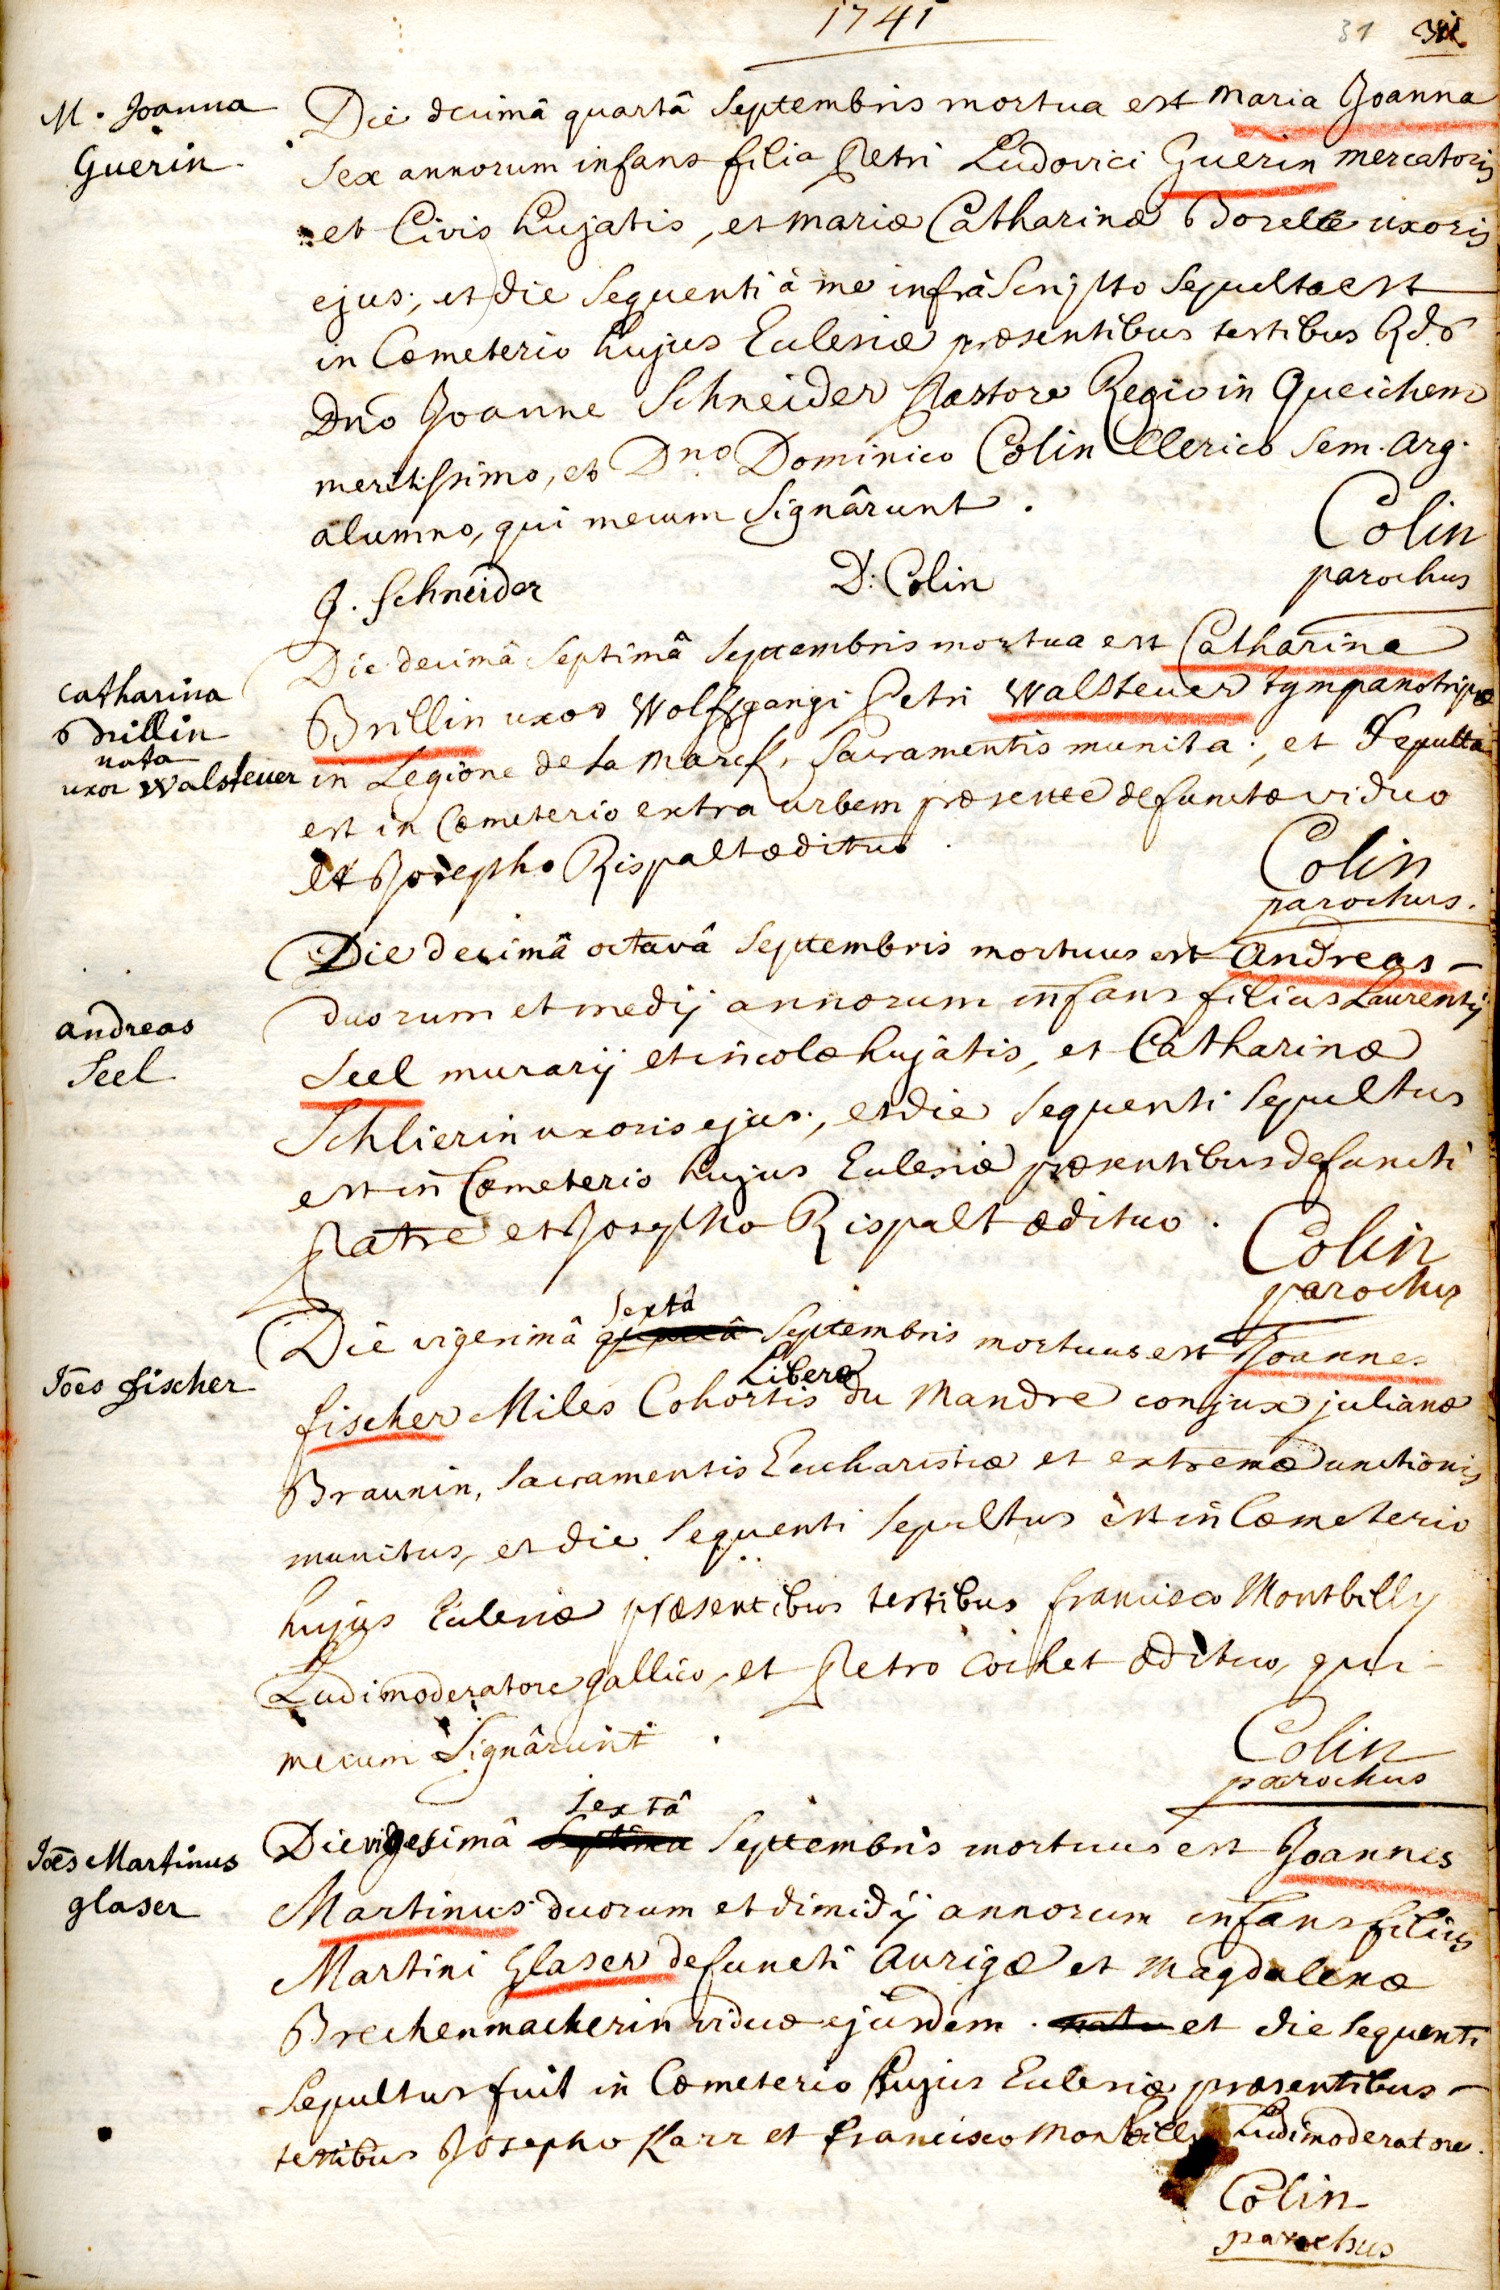 1741
31
M. Joanna
Guerin.
Die decimâ quartâ Septembris mortua est Maria Joanna
sex annorum infans filia Petri Ludovici Guerin mercatoris
et Civis hujatis, et Mariæ Catharinæ Borelle uxoris
ejus; et die sequenti à me infrà Scripto Sepulta est
in Cœmeterio hujus Ecclesiæ præsentibus testibus Rdo
Dno Joanne Schneider Pastore Regio in Queichem
meritissimo, et Dno Dominico Colin Clerico Sem. Arg.
alumno, qui mecum Signârunt.
J. Schneider
D: Colin
Colin
parochus
catharina
Brillin
nata
uxor Walsteuer
Die decimâ Septimâ Septembris mortua est Catharina
Brillin uxor Wolffgangi Petri Walsteuer tympanotribæ
in Legione de la Marck, Sacramentis munita; et Sepulta
est in Cœmeterio extra urbem præsente defunctæ viduo
et Josepho Rispalt ædituo.
Colin
parochus.
andreas
Seel
Die decimâ octavâ Septembris mortuus est Andreas
duorum et medij annorum infans filius Laurentij
Seel murarij et incolæ hujatis, et Catharinæ
Schlierin uxoris ejus; et die sequenti Sepultus
est in Cœmeterio hujus Ecclesiæ præsentibus defuncti
Patre et Josepho Rispalt ædituo.
Colin
parochus
Joēs fischer
sextâ
Die vigesimâ Septembris mortuus est Joannes
Liberæ
fischer Miles Cohortis du Mandre conjux julianæ
Braunin, Sacramentis Eucharistiæ et extremæ unctionis
munitus, et die Sequenti Sepultus est in Cœmeterio
hujus Ecclesiæ præsentibus testibus francisco Montbilly
Ludimoderatore gallico, et Petro Cochet ædituo, qui
mecum Signârunt.
Colin
parochus
Joēs Martinus
glaser
sextâ
Die vigesimâ Septima Septembris mortuus est Joannes
Martinus duorum et dimidij annorum infans filius
Martini Glaser defuncti Aurigæ et Magdalenæ
Brechenmacherin viduæ ejusdem. et die sequenti
Sepultus fuit in Cœmeterio hujus Ecclesiæ præsentibus
testibus Josepho Karr et francisco Montbilly Ludimoderatore.
Colin
parochus